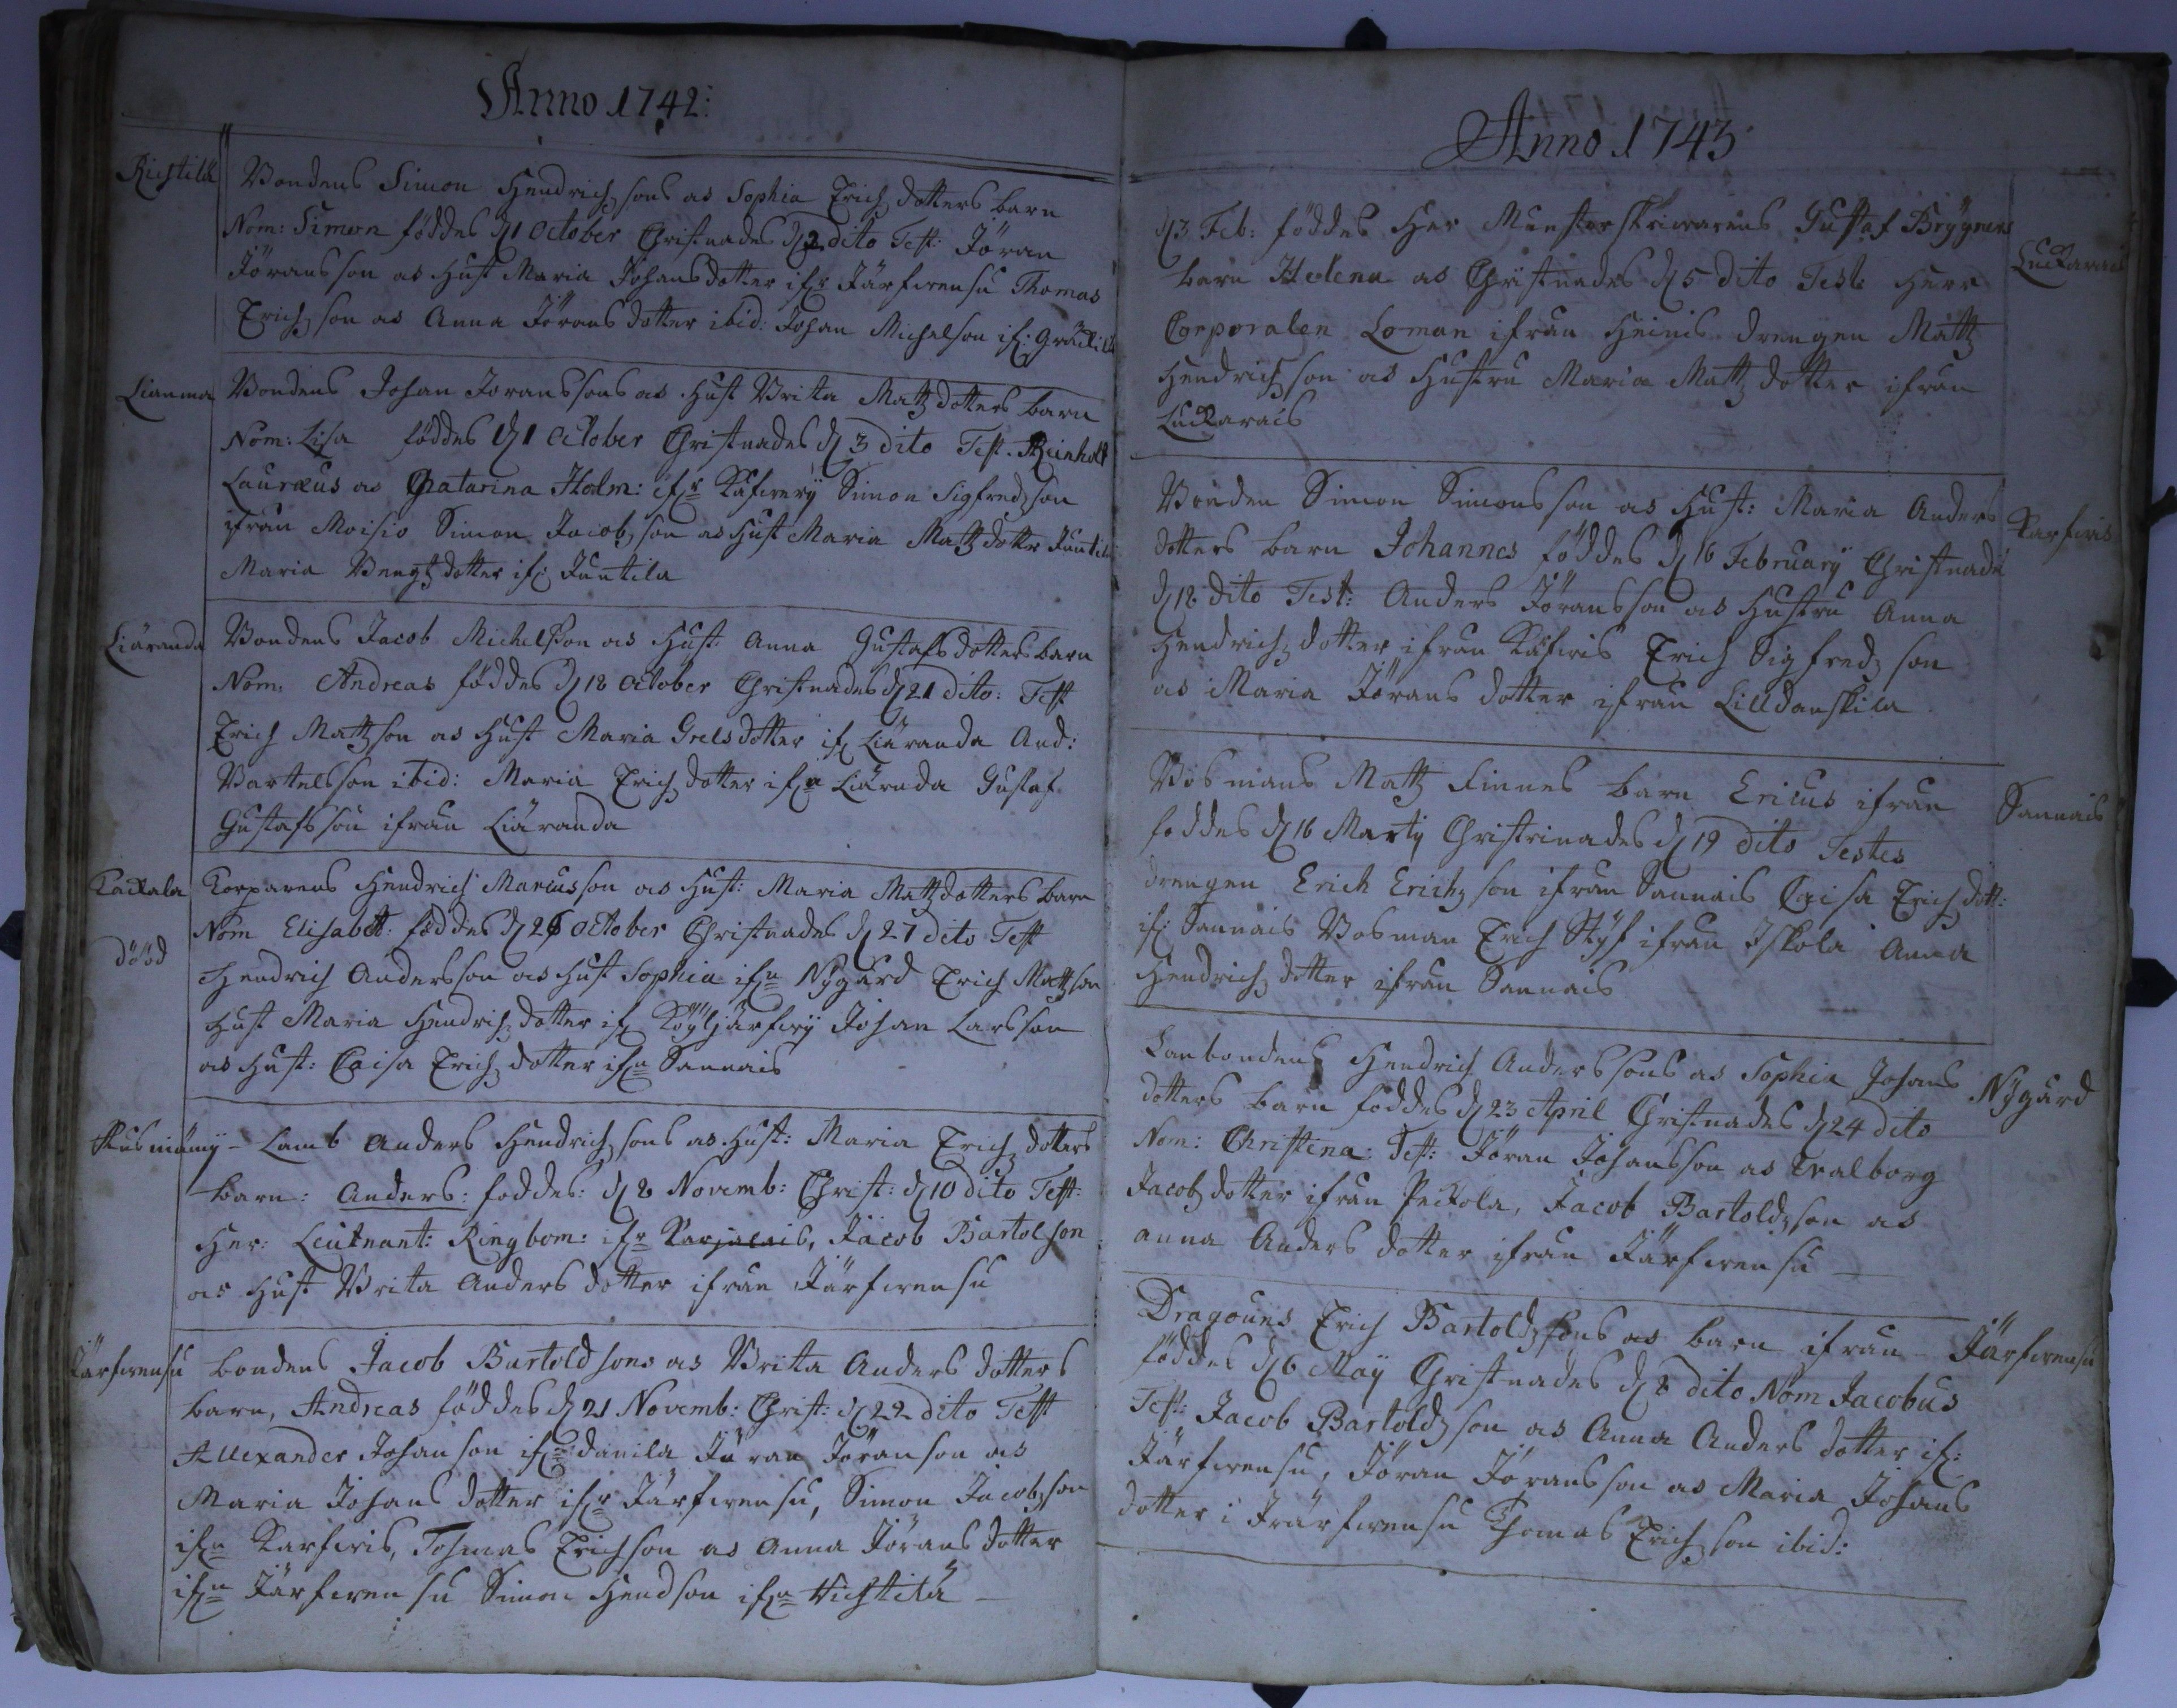 Anno 1742:
Richtilä Bondens Simon Hendrichsons as Sophia Erichs dotters barn
Nom: Simon föddes d 1 October Christnades d 2 dito Test: Jöran
Jöransson as Hust Maria Johans dotter ifr Järfwensu Thomas
Erichson as Anna Jörans dotter ibid: Johan Michelson if:
Bondens Johan Joranssons as Hust Brita Matz dotters barn
Nom: Lisa föddes d 1 October Christnades d 3 dito Test. Reinholt
Lauræus as Chatarina Holm: ifr Simon Sigfredzson
ifrån Moisio Simon Jacobson as Hust Maria Matz dotter Juntila
Maria Bengtz dotter if: Juntila
Liäranda Bondens Jacob Michelson as Hust: Anna Gustafs dotters barn
Nom: Andreas föddes d 18 October Christnades d 21 dito: Test
Erich Matzson as Hust Maria Grels dotter if Liäranda And:
Bartelsson ibid: Maria Erichs dotter ifn Liärnda Gustaf
Gustafsson ifrån Liäranda
Kackala Hendrich Marcusson as Hust: Maria Matzdotters barn
Nom Elisabet: föddes d 26 October Christnades d 27 dito Test
dööd
Hendrich Andersson as Hust Sophia ifn Nygård Erich Matzson
Hust Maria Hendrichs dotter if Köyljärfwy Johan Larsson
as Hust: Caisa Erichs dotter ifn Sannais
Rusmämy - Lamb Anders Hendrichsons as Hust: Maria Erichs dotters
barn: Anders: foddes: d 8 Novemb: Christ: d 10 dito Test:
Her: Leutnant: Ringbom: ifr Karjalais, Jacob Bartolson
as Hust Brita Anders dotter ifrån Järfwensu
Järfwensu bondens Jacob Bartoldsons as Brita Anders dotters
barn, Andreas föddes d 21 Novemb: Christ: d 22 dito Test
Allexander Johanson ifn Danila Jöran Jöranson as
Maria Johans dotter ifr Järfwensu, Simon Jacobson
ifn Karfwis, Tohmas Erichson as Anna Jörans dotter
ifn Järfwensu Simon Hendson ifn Richtilä
Anno 1743
d 3 Feb: föddes Her Munsterskriwarens Gustaf Brygners
Luckarais
barn Helena as Christnades d 5 dito Test: Herr
Corporalen Loman ifrån Heinis drengen Matz
Hendrichson as Hustru Maria Matz dotter ifrån
Luckarais
Bonden Simon Simonsson as Hust: Maria Anders
Karfwis
dotters barn Johannes föddes d 16 February Christnade
d 18 dito Test: Anders Jöransson as Hustru Anna
Hendrichs dotter ifrån Karfwis Erich Sigfredson
as Maria Jörans dotter ifrån Lilldanskila
Bosmans Matz Finnes barn Ericus ifrån Sannais
foddes d 16 Marty Christinades d 19 dito Testes
drengen Erich Erichson ifrån Sannais Caisa Erichs dott:
if: Sannais Bosman Erich Styf ifrån Iskola Anna
Hendrichs dotter ifrån Sannais
Lanbondens Hendrich Anderssons as Sophia Johans Nygård
dotters barn foddes d 23 April Christnades d 24 dito
Nom: Christena: Test: Jöran Johansson as Walborg
Jacobs dotter ifrån Peckola, Jacob Bartoldson as
anna Anders dotter ifrån Järfwensu
Dragouns Erich Bartoldsons as barn ifrån - Järfwensu
föddes d 6 May Christnades d 8 dito Nom Jacobus
Test: Jacob Bartoldson as Anna Anders dotter if:
Järfwensu, Jöran Jöransson as Maria Johans
dotter i Järfwensu Thomas Erichson ibid: